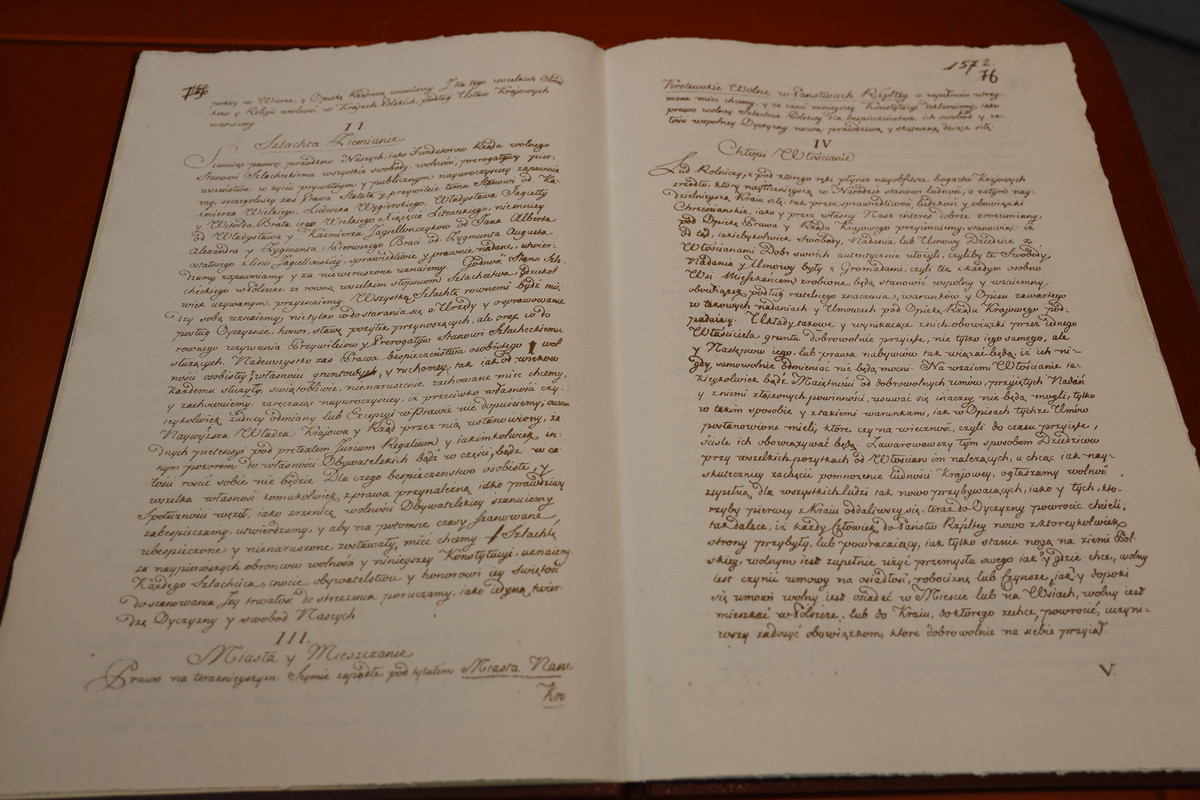 pokoy w Wierze, y Opiekę Rządową winniśmy. I dla tego wszelkich Obrząd-
ków y Religii wolność w Kraiach Polskich, podług Ustaw Kraiowych
waruiemy
II.
Szlachta Ziemianie
Szanuiąc pamięć przodków Naszych, iako Fundatorow Rządu wolnego
Stanowi Szlacheckiemu wszystkie swobody, wolności, prerogatywy pier-
wszeństwa w życiu prywatnym y publicznym nayuroczyściey zapewnia-
my, szczególniey zaś Prawa, Statuta y przywileie temu Stanowi od Ka-
zimierza Wielkiego, Ludwika Węgierskiego, Władysława Jagiełły
y Witołda Brata iego Wielkiego Xiążęcia Litewskiego, niemniey
od Władysława y Kazimierza Jagiellończykow, od Jana Alberta
Alexandra y Zygmunta Pierwszego Braci, od Zygmunta Augusta
ostatniego z linii Jagiellońskiey, sprawiedliwie y prawnie nadane, utwier-
dzamy, zapewniamy y za niewzruszone uznaiemy. Godność Stanu Szla-
checkiego w Polszcze za równą wszelkim stopniom Szlachectwa, gdziekol-
wiek używanym, przyznaiemy. Wszystką Szlachtę równemi bydź mię-
dzy sobą uznaiemy, nie tylko co do starania się o Urzędy y o sprawowanie
posług Oyczyznie, honor, sławę, pożytek przynoszących, ale oraz co do
rownego używania Przywileiow y Prerogatyw Stanowi Szlacheckiemu
służących. Nadewszystko zaś Prawa, bezpieczeństwa osobistego wol-
ności osobistey, własności gruntowych, y ruchomey, tak iak od wiekow
każdemu służyły, świętobliwie, nienaruszenie zachowane mieć chcemy,
y zachowuiemy, zaręczaiąc nayuroczyściey, iż przeciwko własności czy-
ieykolwiek żadney odmiany lub Excepcyi w Prawie nie dopuścimy, owszem
Naywyższa Władza Kraiowa y Rząd przez nią ustanowiony, ża-
dnych pretensyi pod pretextem Jurium Regalium y iakimkolwiek in-
nym pozorem do własności Obywatelskich bądź w części, bądź w ca-
łości rościć sobie nie będzie. Dla czego bezpieczeństwo osobiste, y
wszelką własność komukolwiek z prawa przynależną, iako prawdziwy
Społeczności węzeł, iako zrzenicę wolności Obywatelskiey szanuiemy
zabespieczamy, utwierdzamy, y aby na potomne czasy szanowane
ubespieczone y nienaruszone zostawały, mieć chcemy Szlachtę
za naypierwszych obrońców wolności y ninieyszey Konstytucyi, uznaiemy
Każdego Szlachcica, cnocie, obywatelstwu y honorowi iey świętość
do szanowania, Iey trwałość do strzeżenia poruczamy, iako iedyną twier-
dzę Oyczyzny y swobod Naszych
III.
Miasta y Mieszczanie
Prawo na teraźnieyszym Seymie zapadłe pod tytułem Miasta Nasze
Kró
1572.
76
Królewskie Wolne w Państwach Rzpltey w zupełności utrzy-
mane mieć chcemy, y za część ninieyszey Konstytucyi deklaruiemy, iako
prawo wolney Szlachcie Polskiey dla bezpieczeństwa ich swobod y ca-
łości wspolney Oyczyzny nową, prawdziwą y skuteczną daiące siłę.
IV
Chłopi Włościanie
Lud Rolniczy, z pod ktorego ręki płynie nayobfitsze bogactw kraiowych
zrzodło, ktory nayliczniejszą w Narodzie stanowi ludność, a zatym nay-
dzielnieyszą Kraiu siłę, tak przez sprawiedliwość, ludzkość y obowiązki
Chrześciańskie, iako y przez własny Nasz interes dobrze zrozumiany,
pod Opiekę Prawa y Rządu Kraiowego przyimuiemy, stanowiąc: iż
od tąd, iakiebykolwiek Swobody, Nadania lub Umowy Dziedzice z
Włościanami Dobr swoich autentycznie ułożyli, czyliby te Swobody,
Nadania y Umowy były z Gromadami, czyli też z każdym osobno
Wsi Mieszkańcem zrobione, będą stanowić wspolny y wzaiemny
obowiązek, podług rzetelnego znaczenia, warunkow y Opisu zawartego
w takowych nadaniach y Umowach, pod Opiekę Rządu Kraiowego pod-
padaiący. Układy takowe y wynikaiące z nich obowiązki przez iednego
Właściciela gruntu dobrowolnie przyięte, nie tylko iego samego, ale
y Następcow iego, lub prawa nabywcow tak wiązać będą, iż ich ni-
gdy samowolnie odmieniać nie będą mocni. Na wzaiem Włościanie ia-
kieykolwiek bądź Maiętności od dobrowolnych umow, przyiętych Nadań
y z niemi złączonych powinności, usuwać się inaczey nie będą mogli, tylko
w takim sposobie y z takiemi warunkami, iak w Opisach tychże Umow
postanowione mieli, ktore czy na wieczność, czyli do czasu przyięte,
ściśle ich obowiązywać będą. Zawarowawszy tym sposobem Dziedzicow
przy wszelkich pożytkach od Włościan im należących, a chcąc iak nay-
skuteczniey zachęcić pomnożenie ludności Kraiowey, ogłaszamy wolność
zupełną dla wszystkich ludzi tak nowo przybywaiących, iako y tych, któ-
rzyby pierwey z Kraiu oddaliwszy się, teraz do Oyczyzny powrocić chcieli,
tak dalece, iż każdy Człowiek do Państw Rzpltey nowo z ktoreykolwiek
strony przybyły, lub powracaiący, iak tylko stanie nogą na ziemi Pol-
skiey, wolnym iest zupełnie użyć przemysłu swego iak y gdzie chce, wolny
iest czynić umowy na osiadłość, robociznę lub czynsze, iak y dopoki
się umowi, wolny iest osiadać w Mieście lub na Wsiach, wolny iest
mieszkać w Polszcze, lub do Kraiu, do ktorego zechce, powrocić, uczyni-
wszy zadosyć obowiązkom, ktore dobrowolnie na siebie przyiął.
V.